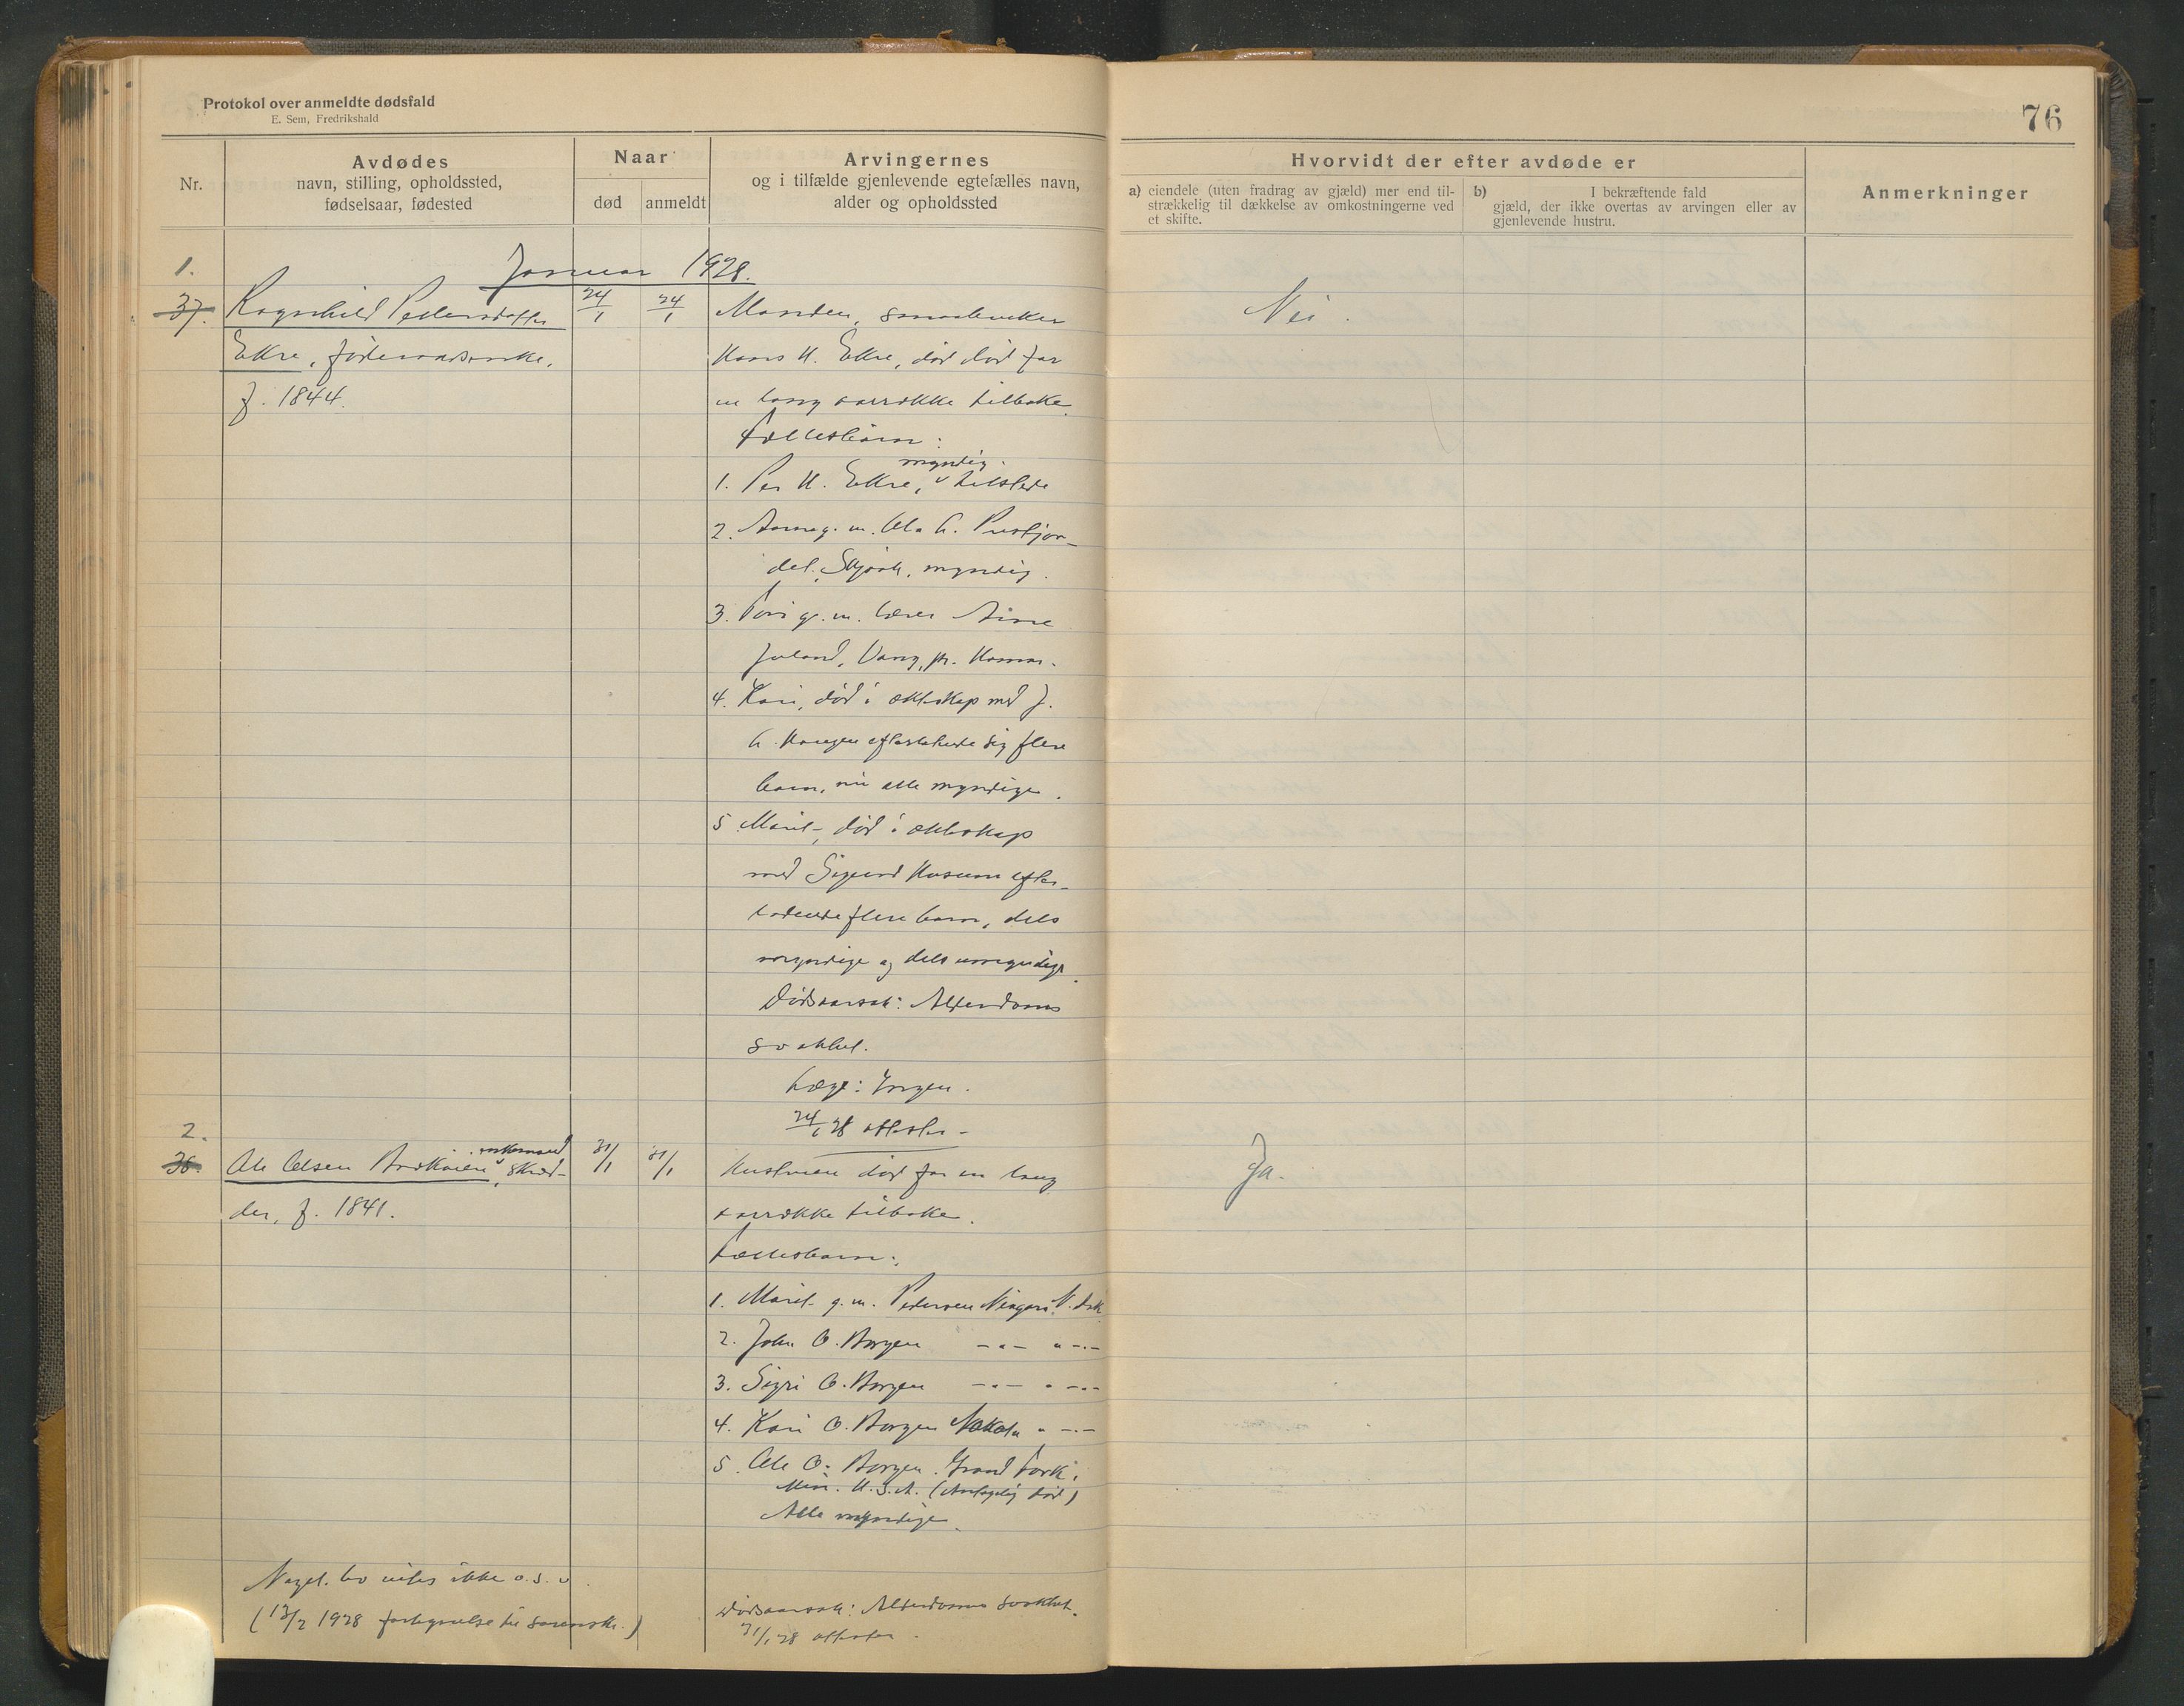 Protokol over anmeldte dødsfald
E. Sem, Fredrikshald
76
Nr.
Avdødes
navn, stilling, opholdssted,
fødselsaar, fødested
Naar
død
anmeldt
Arvingernes
og i tilfælde gjenlevende egtefælles navn,
alder og opholdssted
Hvorvidt der efter avdøde er
a) eiendele (uten fradrag av gjæld) mer end til-
strækkelig til dækkelse av omkostningerne ved
et skifte.
b) I bekræftende fald
gjæld, der ikke overtas av arvingen eller av
gjenlevende hustru.
Anmerkninger
Januar 1928.
1.
37. Ragnhild Pedersdatter
Ekre, føderaadsenke,
f. 1844.
24/1
24/1
Manden, smaabruker
Hans H. Ekre, død for
en lang aarrække tilbake.
Fællesbarn:
myndig.
1. Per H. Ekre, tilstede
2. Anne g. m.
Skjaak, myndig.
3. g. m. lærer
Vang, pr. Hamar.
4. Kari, død i ækteskap med J.
efterlatende sig flere
barn, nu alle myndige.
5. Marit, død i ækteskap
med Sigurd Husum efter-
latende flere barn, dels
myndige og dels umyndige.
Dødsaarsak: Alderdoms
svakhet.
Læge:
24/1 28 attester
Nei.
2.
38. Ole Olsen skræd-
der, f. 1841.
31/1
31/1
Hustruen død for en lang
aarrække tilbake.
Fællesbarn:
1. Marit g. m. Pedersen
2. John O. Borgen -"- " -"-
3. Sigri O. Borgen -"- " -"-
4. Kari O. Borgen " -"-
5. Ole O. Borgen, Grand Fork,
Min. U.S.A. (Antagelig død)
Alle myndige.
Dødsaarsak: Alderdoms svakhet.
31/1 28 attester.
Ja.
ikke o.s.v.
(13/2 1928 fortegnelse til sorenskr.)